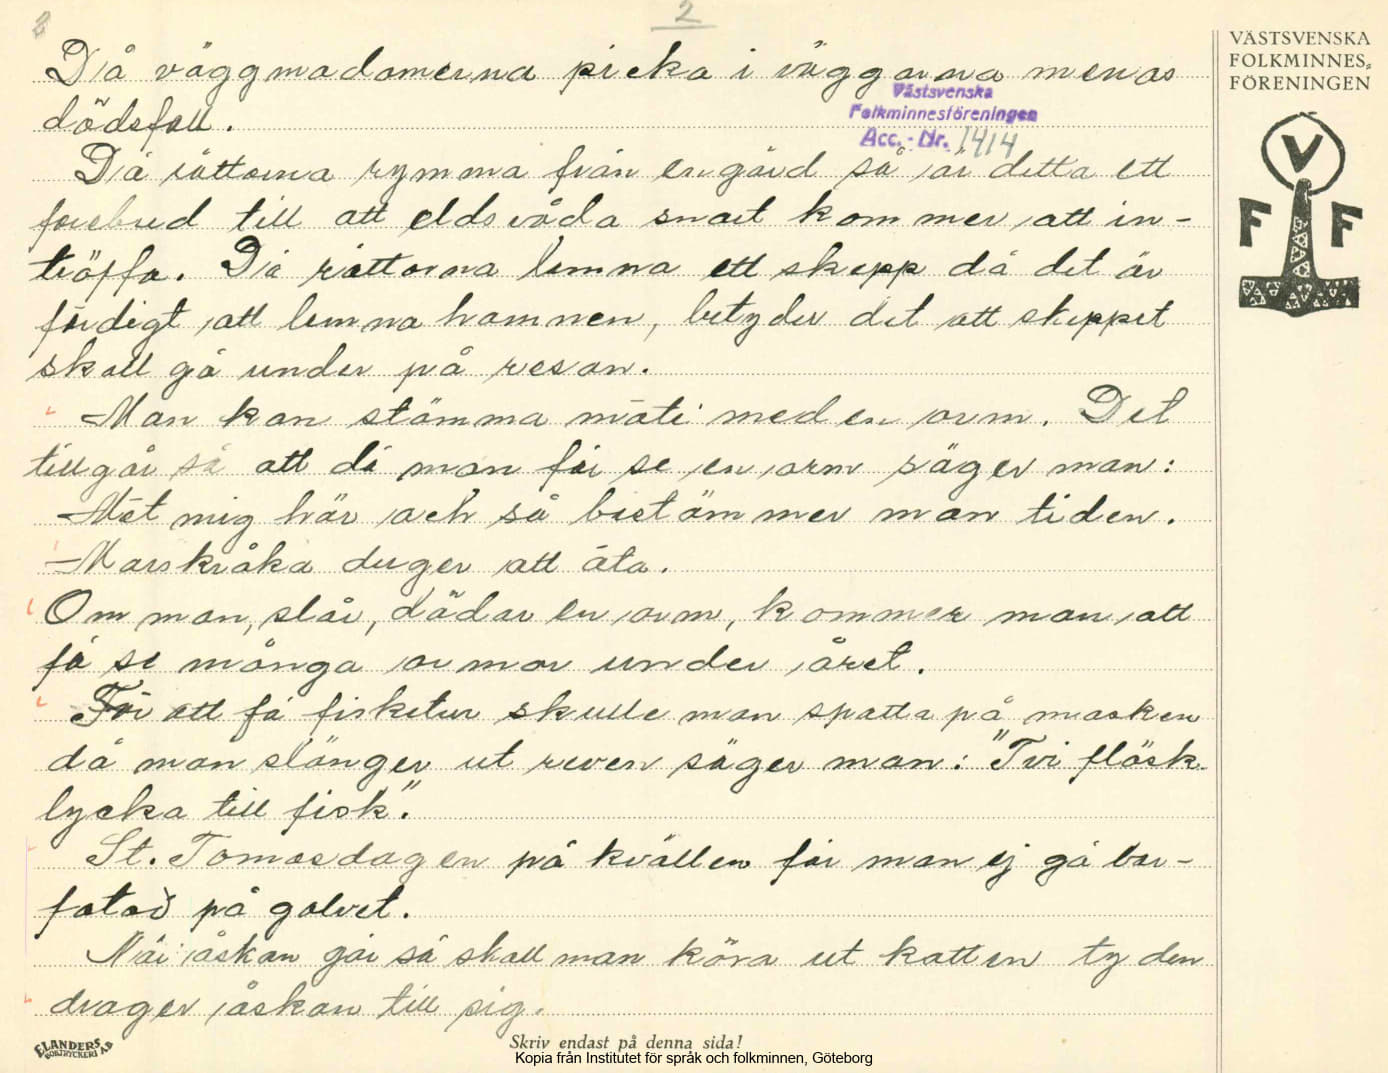 2
VÄSTSVENSKA
FOLKMINNES-
FÖRENINGEN
V
F F
Då väggmadamerna picka i väggarna menas
Västsvenska
Folkminnesföreningen
Acc.-Nr. 1414
dödsfall.
Då råttorna rymma från en gård så är detta ett
forebud till att eldsvåda snart kommer att in-
träffa. Då råttorna lemna ett skepp då det är
färdigt att lemna hamnen, betyder det att skeppet
skall gå under på resan.
Man kan stämma möte med en orm. Det
tillgår så att då man får se en orm säger man:
Möt mig här och så bestämmer man tiden.
Marskråka duger att äta.
Om man slår, dödar en orm, kommer man att
få se många ormar under året.
För att få fisketur skulle man spotta på masken
då man slänger ut reven säger man: "Tvi fläsk
lycka till fisk".
St. Tomasdagen på kvällen får man ej gå bar-
fotad på golvet.
När åskan går så skall man köra ut katten ty den
drager åskan till sig.
ELANDERS
BOKTRYCKERI AB
Skriv endast på denna sida!
Kopia från Institutet för språk och folkminnen, Göteborg